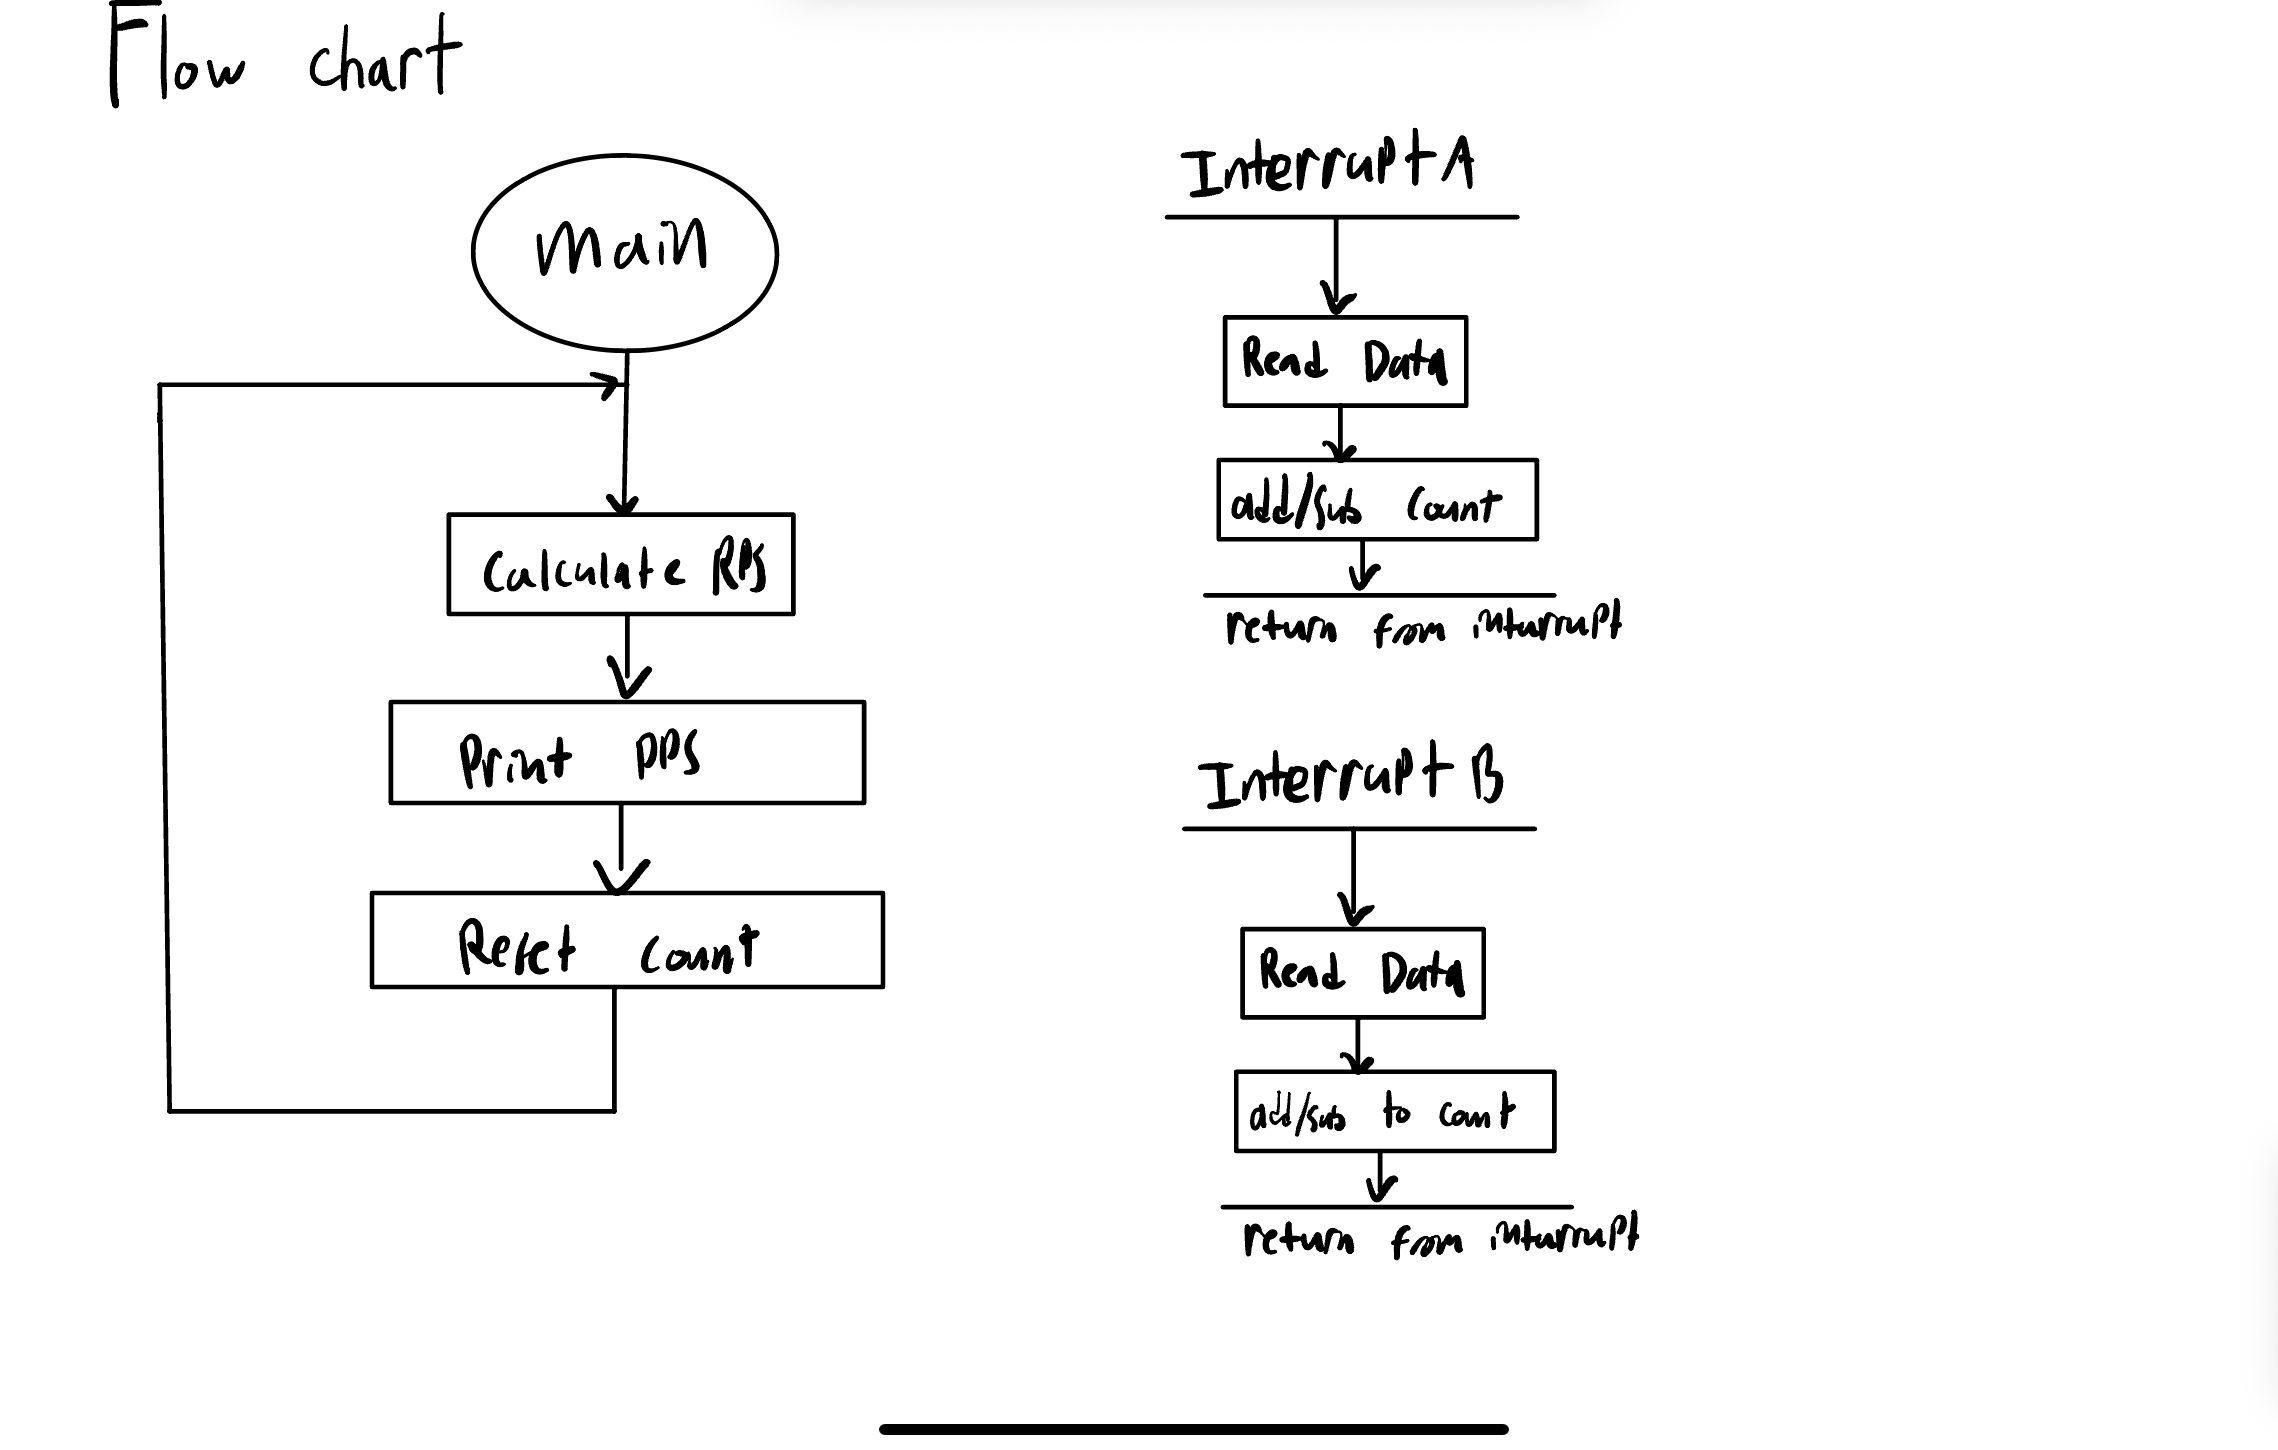 Flow chart
Main
Calculate RPS
Print PPS
Reset Count
Interrupt A
Read Data
add/sub Count
return from inturrupt
Interrupt B
Read Data
add/sub to count
return from inturrupt